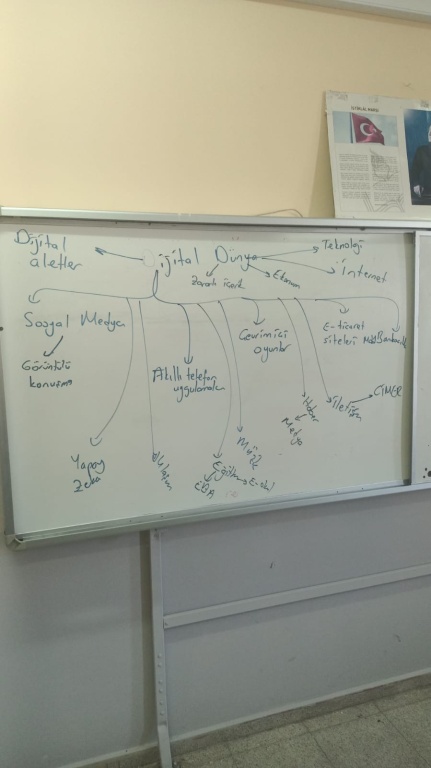 İSTİKLAL MARŞI
Dijital Dünya
Dijital
aletler
Teknoloji
İnternet
Zararlı içerik
Ekonomi
Sosyal Medya
Görüntülü
konuşma
Yapay
Zeka
Akıllı telefon
uygulamaları
Eğitim
EBA
E-okul
Müzik
Çevrimiçi
oyunlar
Haber
Medya
İletişim
CİMER
E-ticaret
siteleri